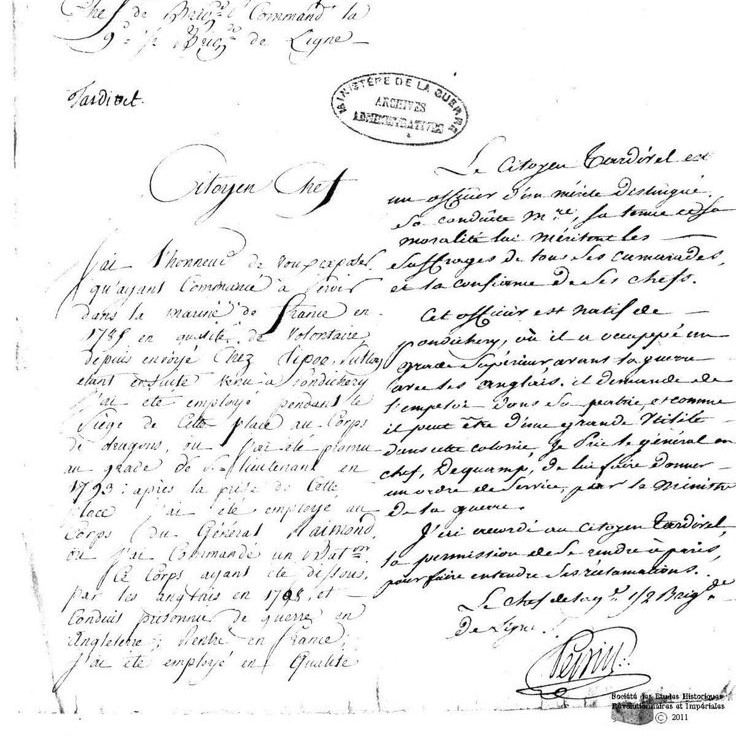 Chef de Brig.de Command. la
9.e ½ Brig.de de Ligne
Tardivel.
MINISTÈRE DE LA GUERRE
ARCHIVES
ADMINISTRATIVES
Citoyen Chef
J'ai l'honneur de vous exposer,
qu'ayant Commancé a servir
dans la marine de france en
en qualité de Volontaire
depuis envoyé Chez Tipoo Sultan
etant ensuite venu a Pondichery
j'ai eté employé pendant le
Siege de Cette place au Corps
de dragons, ou j'ai été promu
au grade de S. Lieutenant en
1793: apres la prise de Cette
place j'ai eté employé au
Corps du Général Raimond,
ou j'ai Commandé un Bat.on
Le Corps ayant eté dissous,
par les anglais en 1798, et
Conduit prisonnier de guerre en
angleterre; Rentré en france
j'ai eté employé en Qualité
Le Citoyen Tardivel est
un officier d'un mérite distingué.
Sa conduite m.re, sa tenue et sa
moralité lui méritent les
suffrages de tous ses camarades,
et la confiance de ses chefs.
Cet officier est natif de
pondichery, où il a occupé un
grade supérieur avant la guerre
avec les anglais. il demande de
l'emploi dans sa patrie, et comme
il peut être d'une grande utilité
dans cette colonie, je prie le général en
chef, Decaen, de lui faire donner
un ordre de service, par le Ministre
de la guerre.
J'ai accordé au Citoyen Tardivel,
la permission de se rendre à paris,
pour faire entendre ses réclamations.
Le chef de la 9.e ½ Brig.de
de Ligne.
Société des Etudes Historiques
Révolutionnaires et Impériales
© 2011